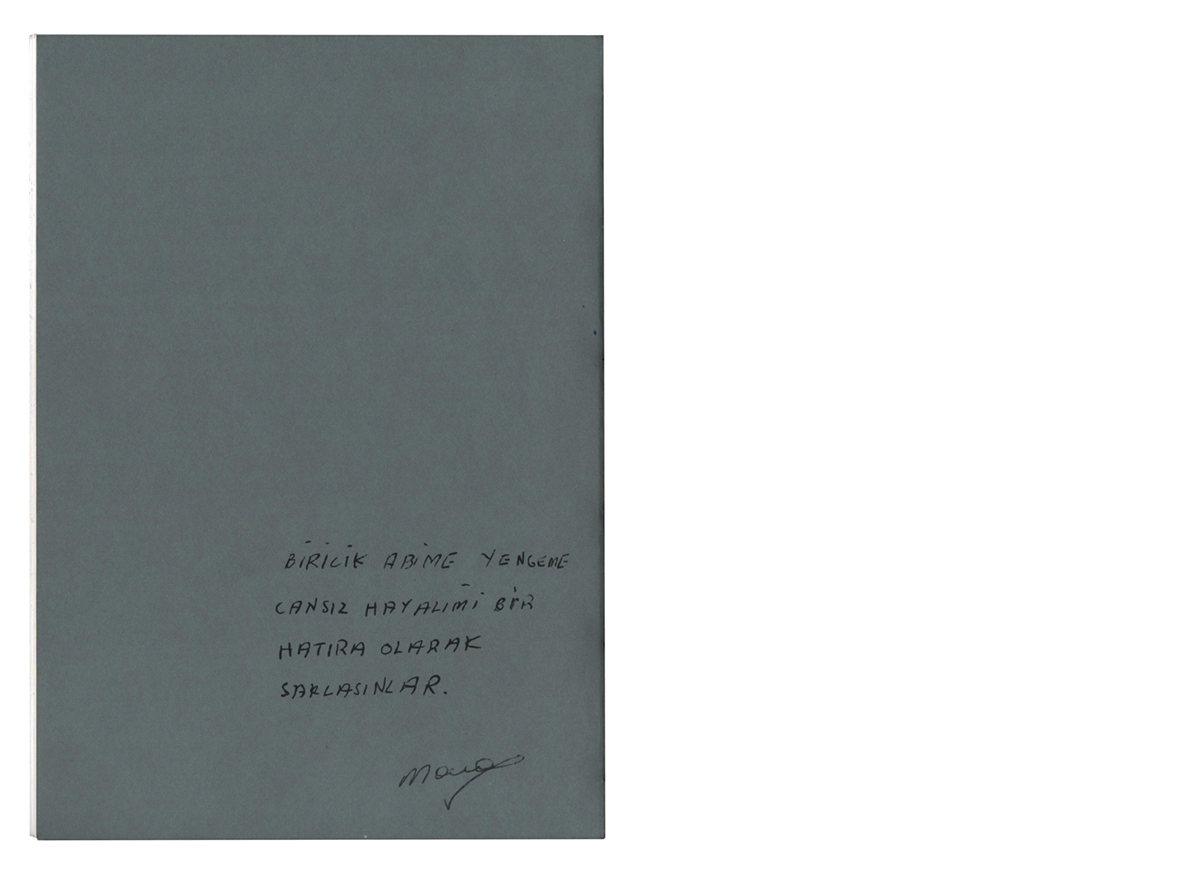 BİRİCİK ABİME YENGEME
CANSIZ HAYALIMİ BİR
HATIRA OLARAK
SAKLASINLAR.